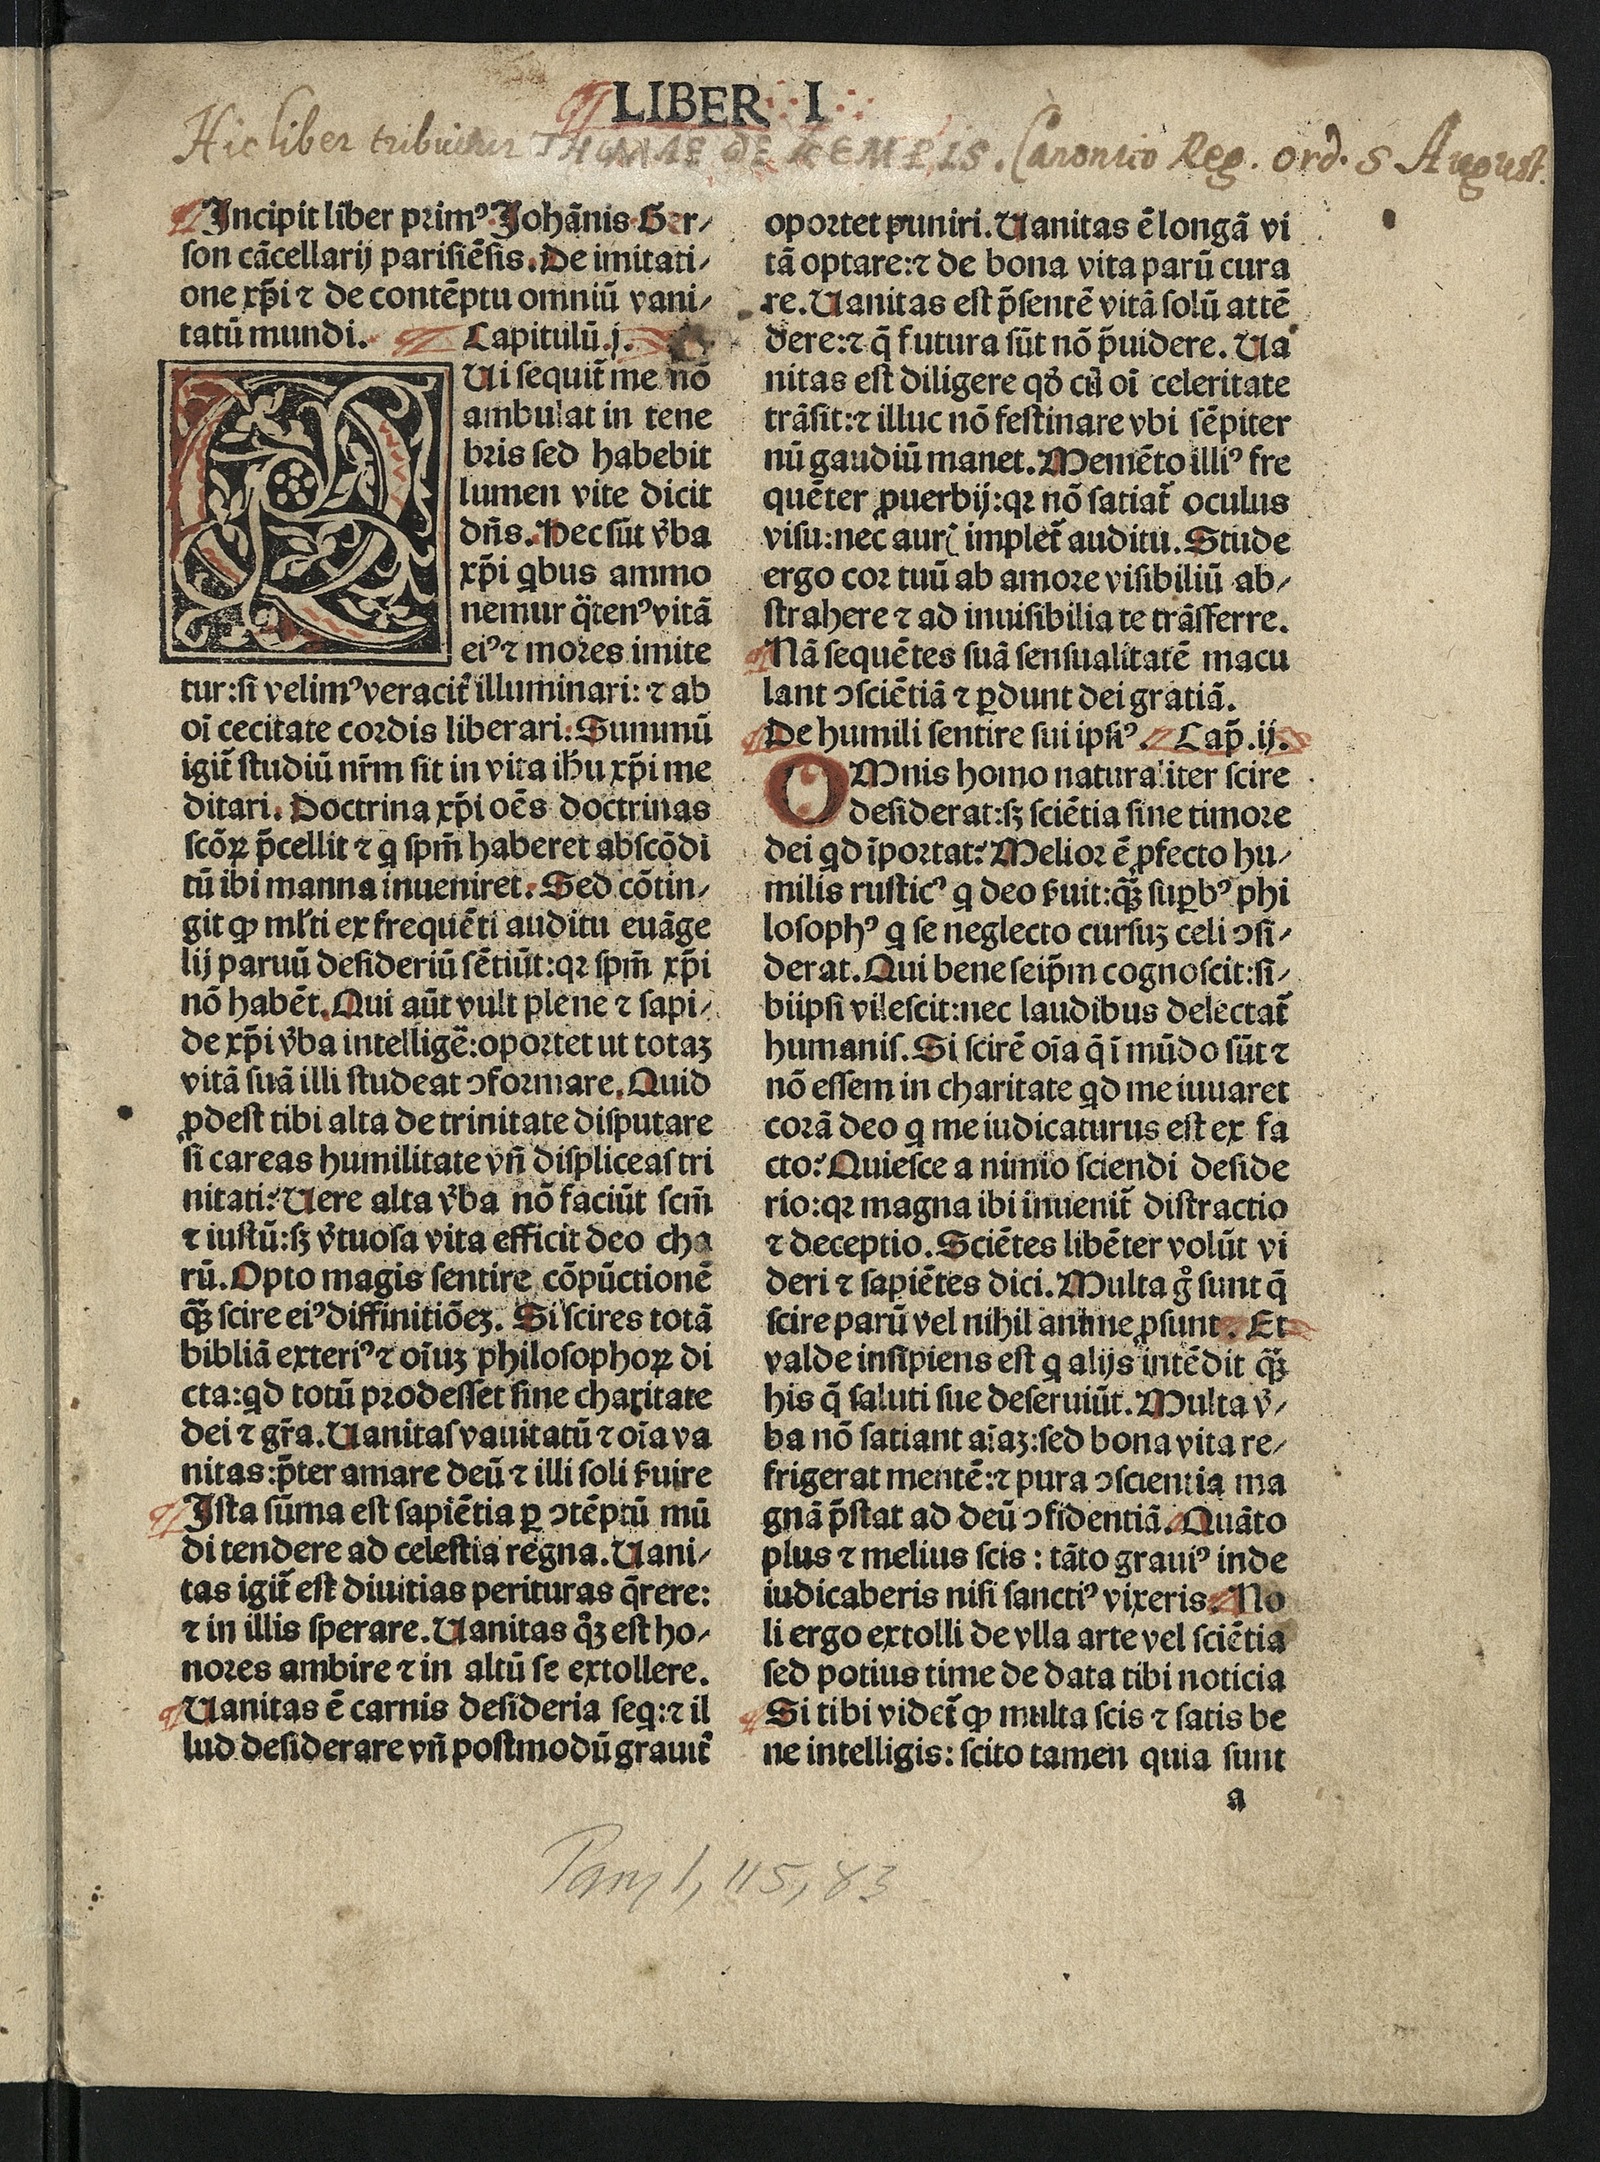 LIBER I
Hic liber tribuitur THOMAE DE KEMPIS. Canonico Reg. ord. S August.
Incipit liber primꝰ Johãnis Ger⸗
son cãcellarij parisiẽsis. De imitati⸗
one xp̃i ⁊ de contẽptu omniũ vani⸗
tatũ mundi. Capitulũ.j.
Ui sequit᷑ me nõ
ambulat in tene
bris sed habebit
lumen vite dicit
dñs. Hec sũt v̾ba
xp̃i qͥbus ammo
nemur q̈tenꝰ vitã
eiꝰ ⁊ mores imite
tur:si velimꝰ veracit᷑ illuminari: ⁊ ab
oĩ cecitate cordis liberari. Summũ
igit᷑ studiũ nr̃m sit in vita ih̃u xp̃i me
ditari. Doctrina xp̃i oẽs doctrinas
scõꝝ p̃cellit ⁊ q̇ sp̃m haberet abscõdi
tũ ibi manna inueniret. Sed cõtin⸗
git ꝙ ml̃ti ex frequẽti auditu euãge
lij paruũ desideriũ sẽtiũt:qꝛ sp̃m xp̃i
nõ habẽt. Qui aũt vult plene ⁊ sapi⸗
de xp̃i v̾ba intelligẽ:oportet ut totaꝫ
vitã suã illi studeat ↄformare. Quid
ꝓdest tibi alta de trinitate disputare
si careas humilitate vñ displiceas tri
nitati? Uere alta v̾ba nõ faciũt scm̃
⁊ iustũ:sꝫ v̾tuosa vita efficit deo cha
rũ. Opto magis sentire cõpũctionẽ
qꝫ̃ scire eiꝰ diffinitiõeꝫ. Si scires totã
bibliã exteriꝰ ⁊ oĩuꝫ philosophoꝝ di
cta:qͥd totũ prodesset sine charitate
dei ⁊ gr̃a. Uanitas vauitatũ ⁊ oĩa va
nitas:p̃ter amare deũ ⁊ illi soli ẜuire
Ista sũma est sapiẽtia ꝑ ↄtẽptũ mũ
di tendere ad celestia regna. Uani⸗
tas igit᷑ est diuitias perituras q̃rere:
⁊ in illis sperare. Uanitas qͦꝫ est ho⸗
nores ambire ⁊ in altũ se extollere.
Uanitas ẽ carnis desideria seq:⁊ il
lud desiderare vñ postmodũ grauit᷑
oportet puniri. Uanitas ẽ longã vi
tã optare:⁊ de bona vita parũ cura
re. Uanitas est p̃sentẽ vitã solũ attẽ
dere:⁊ q̃ futura sũt nõ p̃uidere. Ua
nitas est diligere qď cũ oĩ celeritate
trãsit:⁊ illuc nõ festinare vbi sẽpiter
nũ gaudiũ manet. Memẽto illiꝰ fre
quẽter ꝓuerbij:qꝛ nõ satiat᷑ oculus
visu:nec aurꝭ implet᷑ auditu. Stude
ergo cor tuũ ab amore visibiliũ ab⸗
strahere ⁊ ad inuisibilia te trãsferre.
Nã sequẽtes suã sensualitatẽ macu
lant ↄsciẽtiã ⁊ ꝑdunt dei gratiã.
De humili sentire sui ipsiꝰ. Cap̃.ij.
OMnis homo naturaliter scire
desiderat:sꝫ sciẽtia sine timore
dei qͥd ĩportat? Melior ẽ ꝓfecto hu⸗
milis rusticꝰ q̇ deo ẜuit:qꝫ̃ suꝑbꝰ phi
losophꝰ q̇ se neglecto cursuꝫ celi ↄsi⸗
derat. Qui bene seip̃m cognoscit:si⸗
biipsi vilescit:nec laudibus delectat᷑
humanis. Si scirẽ oĩa q̃ ĩ mũdo sũt ⁊
nõ essem in charitate qͥd me iuuaret
corã deo q̇ me iudicaturus est ex fa
cto? Quiesce a nimio sciendi deside
rio:qꝛ magna ibi inuenit᷑ distractio
⁊ deceptio. Sciẽtes libẽter volũt vi
deri ⁊ sapiẽtes dici. Multa gͦ sunt q̃
scire parũ vel nihil anime ꝓsunt. Et
valde insipiens est q̇ alijs intẽdit qꝫ̃
his q̃ saluti sue deseruiũt. Multa v̾⸗
ba nõ satiant aĩaꝫ:sed bona vita re⸗
frigerat mentẽ:⁊ pura ↄscientia ma
gnã p̃stat ad deũ ↄfidentiã. Quãto
plus ⁊ melius scis : tãto grauiꝰ inde
iudicaberis nisi sanctiꝰ vixeris. No
li ergo extolli de vlla arte vel sciẽtia
sed potius time de data tibi noticia
Si tibi videt᷑ ꝙ multa scis ⁊ satis be
ne intelligis: scito tamen quia sunt
a
115, 83